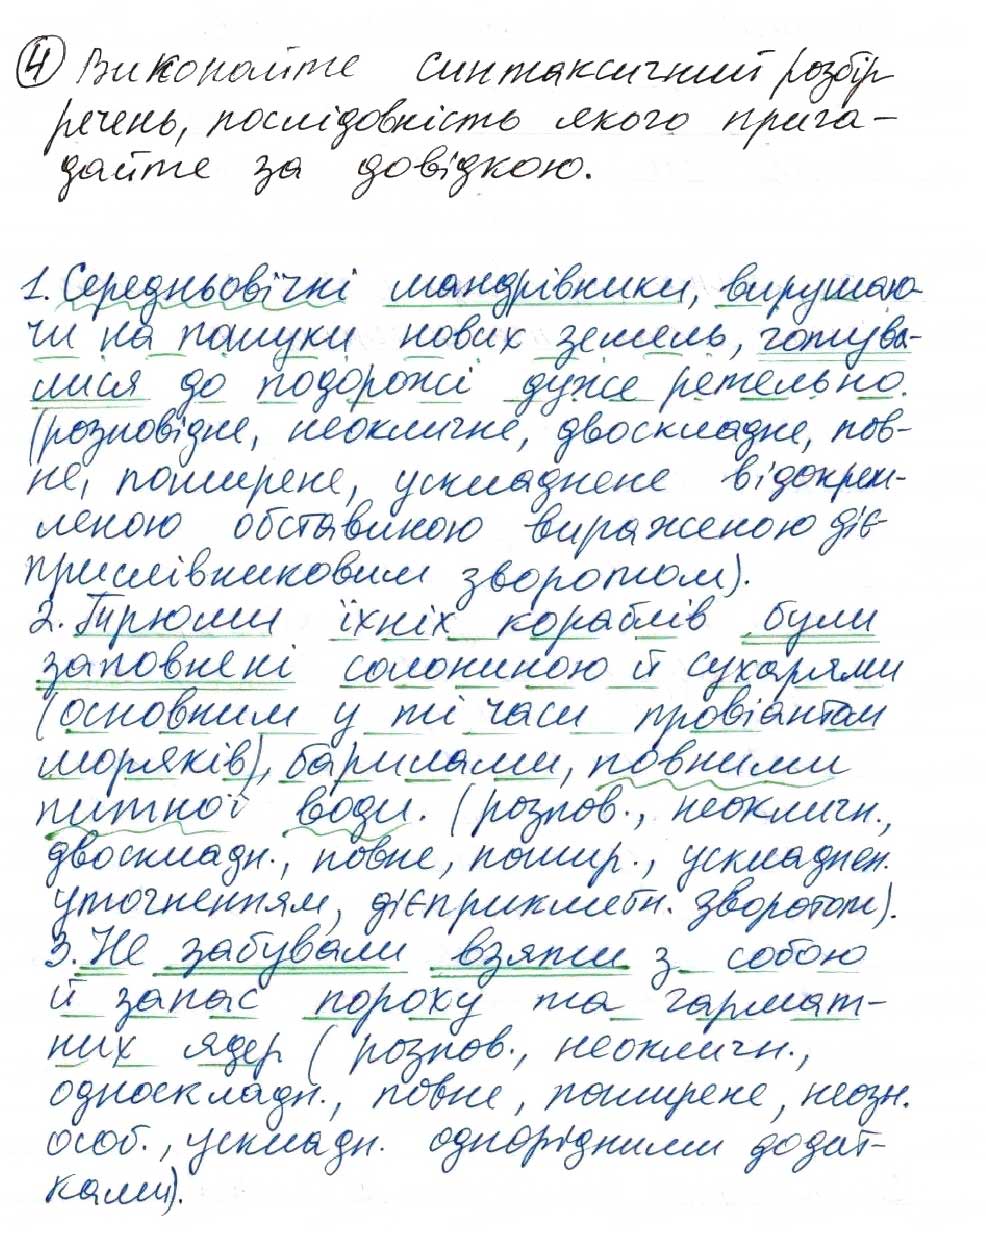 4 Виконайте синтаксичний розбір
речень, послідовність якого прига-
дайте за довідкою.
1. Середньовічні мандрівники, вирушаю-
чи на пошуки нових земель, готува-
лися до подорожі дуже ретельно.
(розповідне, неокличне, двоскладне, пов-
не, поширене, ускладнене відокрем-
леною обставиною вираженою діє-
прислівниковим зворотом).
2. Трюми їхніх кораблів були
заповнені солониною й сухарями
(основним у ті часи провіантом
моряків), барилами, повними
питної води. (розпов., неокличн.,
двоскладн., повне, пошир., ускладнен.
уточненням, дієприкметн. зворотом).
3. Не забували взяти з собою
й запас пороху та гармат-
них ядер (розпов., неокличн.,
односкладн., повне, поширене, неозн.
особ., ускладн. однорідними додат-
ками).